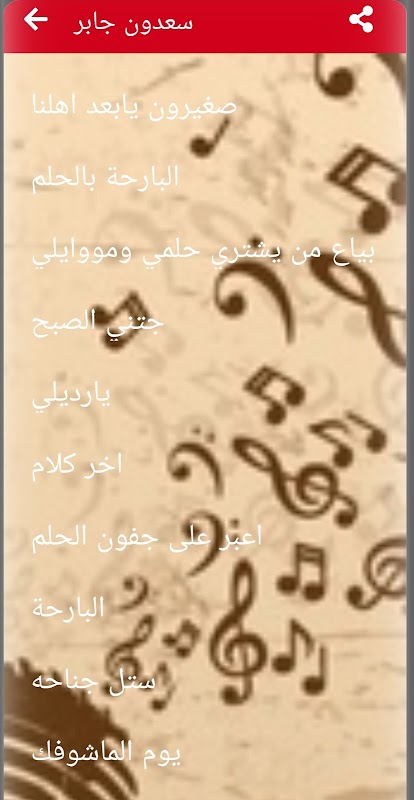 سعدون جابر
صغيرون يابعد اهلنا
البارحة بالحلم
بياع من يشتري حلمي ومووايلي
جتني الصبح
يارديلي
اخر كلام
اعبر على جفون الحلم
البارحة
ستل جناحه
يوم الماشوفك